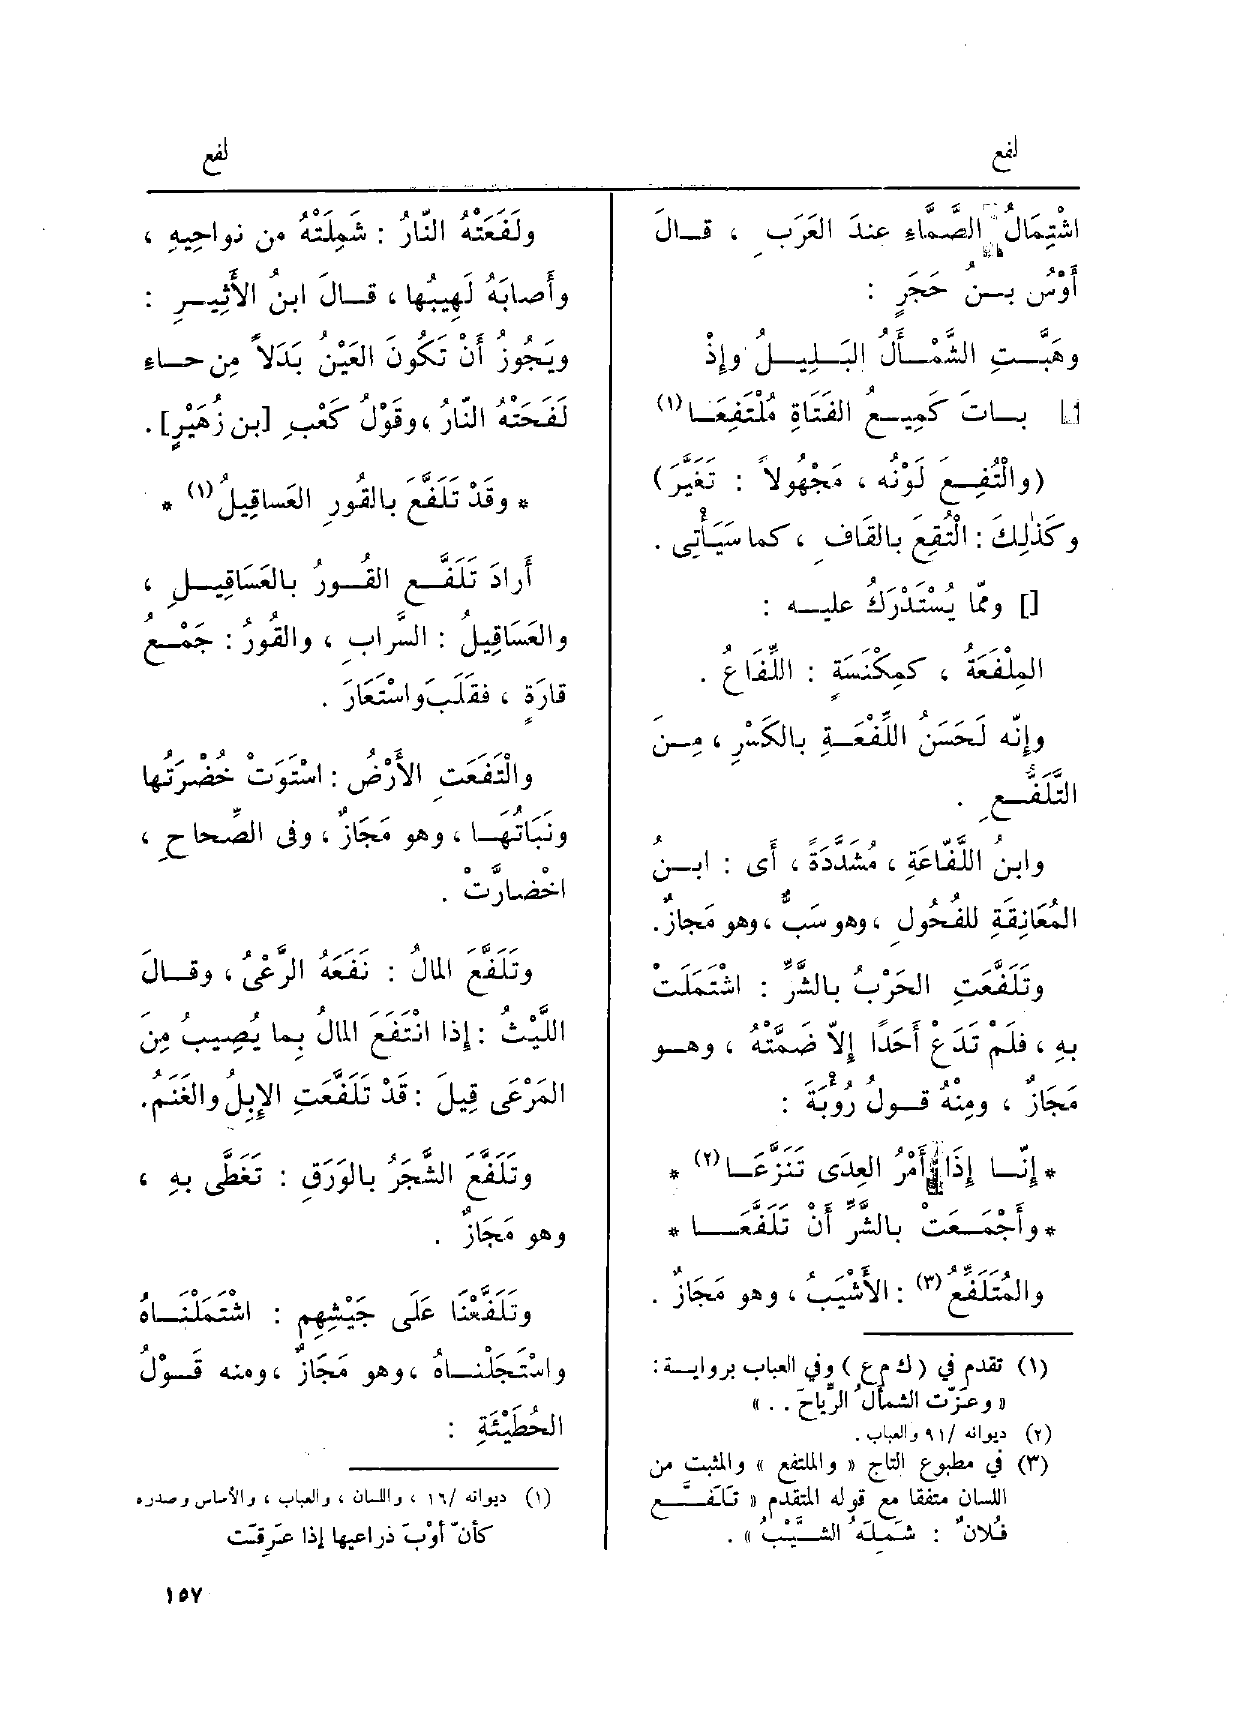 لفع
لفع
اشْتِمَالُ الصَّمَّاءِ عندَ العَرَبِ ، قـالَ
أَوْسُ بـنُ حَجَرٍ :
وهَبَّـتِ الشَّمْـأَلُ البَلِيـلُ وإِذْ
بـاتَ كَمِيـعُ الفَتَاةِ مُلْتَفِعَـا(١)
(والْتُفِـعَ لَوْنُه ، مَجْهُولاً : تَغَيَّرَ)
وكَذٰلِكَ : الْتُقِعَ بالقَافِ ، كما سَيَأْتِى .
[] وممّا يُسْتَدْرَكُ عليـه :
المِلْفَعَةُ ، كمِكْنَسَةٍ : اللِّفَاعُ .
وإِنّه لَحَسَنُ اللِّفْعَـةِ بالكَسْرِ ، مِـنَ
التَّلَفُّـعِ .
وابنُ اللَّفّاعَةِ ، مُشَدَّدَةً ، أَى : ابـنُ
المُعَانِقَةِ للفُحُولِ ، وهو سَبٌّ ، وهو مَجازٌ.
وتَلَفَّعَتِ الحَرْبُ بالشَّرِّ : اشْتَمَلَتْ
بِهِ ، فلَمْ تَدَعْ أَحَدًا إِلاّ ضَمَّتْهُ ، وهـو
مَجَازٌ ، ومِنْهُ قـولُ رُؤْبَةَ :
* إِنّـا إِذَا أَمْرُ العِدَى تَنَزَّعَـا(٢) *
* وأَجْمَـعَتْ بالشَّرِّ أَنْ تَلَفَّعَـا *
والمُتَلَفِّعُ(٣) : الأَشْيَبُ ، وهو مَجَازٌ .
(١) تقدم في (ك م ع) وفي العباب بروايـة :
« وعَزّت الشمألُ الرّياحَ . . »
(٢) ديوانه /٩١ والعباب .
(٣) في مطبوع التاج « والملتفع » والمثبت من
اللسان متفقا مع قوله المتقدم « تَلَفَّـعَ
فُلانٌ : شَمِلَهُ الشَّيْبُ » .
ولَفَعَتْهُ النّارُ : شَمِلَتْهُ من نواحِيهِ ،
وأَصابَهُ لَهِيبُها ، قـالَ ابنُ الأَثِيـرِ :
ويَجُوزُ أَنْ تَكُونَ العَيْنُ بَدَلاً مِن حـاءِ
لَفَحَتْهُ النّارُ ، وقَوْلُ كَعْبِ [بن زُهَيْرٍ] .
* وقَدْ تَلَفَّعَ بالقُورِ العَساقِيلُ(١) *
أَرادَ تَلَفَّـعَ القُـورُ بالعَسَاقِيـلِ ،
والعَسَاقِيلُ : السَّرابِ ، والقُورُ : جَمْـعُ
قارَةٍ ، فقَلَبَ واسْتَعَارَ .
والْتَفَعَتِ الأَرْضُ : اسْتَوَتْ خُضْرَتُها
ونَبَاتُهـا ، وهو مَجَازٌ ، وفى الصِّحاحِ ،
اخْضارَّتْ .
وتَلَفَّعَ المَالُ : نَفَعَهُ الرَّعْىُ ، وقـالَ
اللَّيْثُ : إِذا انْتَفَعَ المَالُ بِما يُصِيبُ مِنَ
المَرْعَى قِيلَ : قَدْ تَلَفَّعَتِ الإِبِلُ والغَنَمُ.
وتَلَفَّعَ الشَّجَرُ بالوَرَقِ : تَغَطَّى بهِ ،
وهو مَجَازٌ .
وتَلَفَّعْنَا عَلَى جَيْشِهِم : اشْتَمَلْنـاهُ
واسْتَجَلْنـاهُ ، وهو مَجَازٌ ، ومنه قَـوْلُ
الحُطَيْئَةِ :
(١) ديوانه /١٦ ، واللسان ، والعباب ، والأساس وصدره
كأَنّ أَوْبَ ذراعيها إذا عَرِقَت
١٥٧